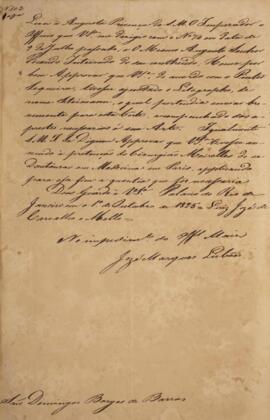 Levei a Augusta Presença de S. M. O Imperador o
Officio que V.S. me dirigio com o Nº 70 em data de
de Julho passado, e O Mesmo Augusto Senhor
ficando Inteirado do seu conthéudo, Houve por
bem Approvar que V.S. de acordo com o
Sequeira, tivesse ajustado o Lithographo, de
nome Steinmann, o qual pretendia enviar bre-
vemente para esta Corte, acompanhado dos a-
prestos necessarios á sua Arte. Igualmente
S. M. I. Se Dignou Approvar que V.S. tivesse an-
nuido á pretenção do Cirurgião Meirelles de se
Doutorar em Medicina em Paris, applicando
para esse fim a quantia que for necessaria
Deos Guarde a V.S. Palacio do Rio de
Janeiro em 1º de Outubro de 1825 Luiz José de
Carvalho e Mello
No impedimto do Offal Maior
José Marques Lisboa
Snr Domingos Borges de Barros